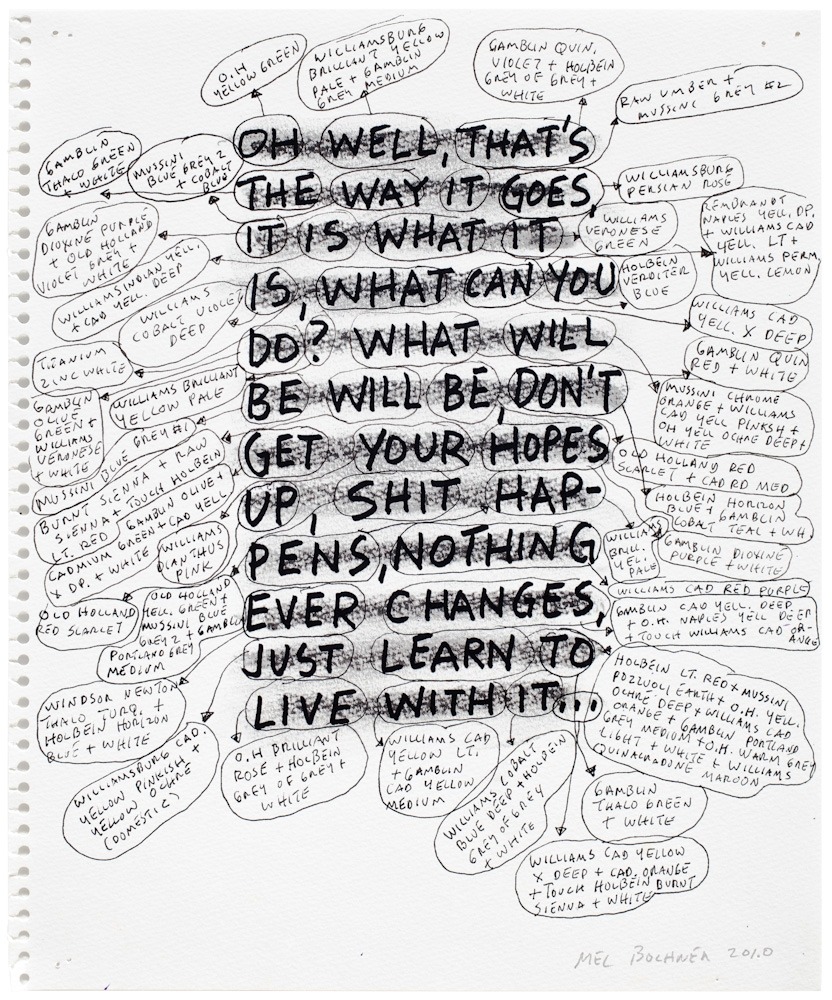 O.H
YELLOW GREEN
WILLIAMSBURG
BRILLIANT YELLOW
PALE + GAMBLIN
GREY MEDIUM
GAMBLIN QUIN.
VIOLET + HOLBEIN
GREY OF GREY +
WHITE
RAW UMBER +
MUSSINI GREY #2
GAMBLIN
THALO GREEN
+ WHITE
MUSSINI
BLUE GREY 2
+ COBALT
BLUE
OH WELL, THAT'S
THE WAY IT GOES,
IT IS WHAT IT
IS, WHAT CAN YOU
DO? WHAT WILL
BE WILL BE, DON'T
GET YOUR HOPES
UP, SHIT HAP-
PENS, NOTHING
EVER CHANGES,
JUST LEARN TO
LIVE WITH IT...
WILLIAMSBURG
PERSIAN ROSE
WILLIAMS
VERONESE
GREEN
REMBRANDT
NAPLES YELL. DP.
+ WILLIAMS CAD
YELL. LT +
WILLIAMS PERM.
YELL. LEMON
HOLBEIN
VERDITER
BLUE
WILLIAMS CAD
YELL. X DEEP
GAMBLIN QUIN
RED + WHITE
MUSSINI CHROME
ORANGE + WILLIAMS
CAD YELL PINKSH +
OH YELL OCHRE DEEP +
WHITE
OLD HOLLAND RED
SCARLET + CAD RD MED
HOLBEIN HORIZON
BLUE + GAMBLIN
COBALT TEAL + WH
WILLIAMS
BRILL.
YELL.
PALE
GAMBLIN DIOXINE
PURPLE + WHITE
WILLIAMS CAD RED PURPLE
GAMBLIN CAD YELL. DEEP
+ O.H. NAPLES YELL DEEP
+ TOUCH WILLIAMS CAD OR-
ANGE
HOLBEIN LT. RED + MUSSINI
POZZUOLI EARTH + O.H. YELL.
OCHRE DEEP + WILLIAMS CAD
ORANGE + GAMBLIN PORTLAND
GREY MEDIUM + O.H. WARM GREY
LIGHT + WHITE + WILLIAMS
QUINACRADONE MAROON
GAMBLIN
DIOXINE PURPLE
+ OLD HOLLAND
VIOLET GREY +
WHITE
WILLIAMS INDIAN YELL.
+ CAD YELL. DEEP
WILLIAMS
COBALT VIOLET
DEEP
TITANIUM
ZINC WHITE
WILLIAMS BRILLIANT
YELLOW PALE
GAMBLIN
OLIVE
GREEN +
WILLIAMS
VERONESE
+ WHITE
MUSSINI BLUE GREY #1
BURNT SIENNA + RAW
SIENNA + TOUCH HOLBEIN
LT. RED
GAMBLIN OLIVE +
CADMIUM GREEN + CAD YELL
X DP. + WHITE
WILLIAMS
DIANTHUS
PINK
OLD HOLLAND
RED SCARLET
OLD HOLLAND
YELL. GREEN +
MUSSINI BLUE
GREY 2 + GAMBLIN
PORTLAND GREY
MEDIUM
WINDSOR NEWTON
THALO TURQ. +
HOLBEIN HORIZON
BLUE + WHITE
WILLIAMSBURG CAD.
YELLOW PINKISH +
YELLOW OCHRE
(DOMESTIC)
O.H BRILLIANT
ROSE + HOLBEIN
GREY OF GREY +
WHITE
WILLIAMS CAD
YELLOW LT.
+ GAMBLIN
CAD YELLOW
MEDIUM
WILLIAMS COBALT
BLUE DEEP + HOLBEIN
GREY OF GREY
+ WHITE
GAMBLIN
THALO GREEN
+ WHITE
WILLIAMS CAD YELLOW
X DEEP + CAD. ORANGE
+ TOUCH HOLBEIN BURNT
SIENNA + WHITE
MEL BOCHNER 2010